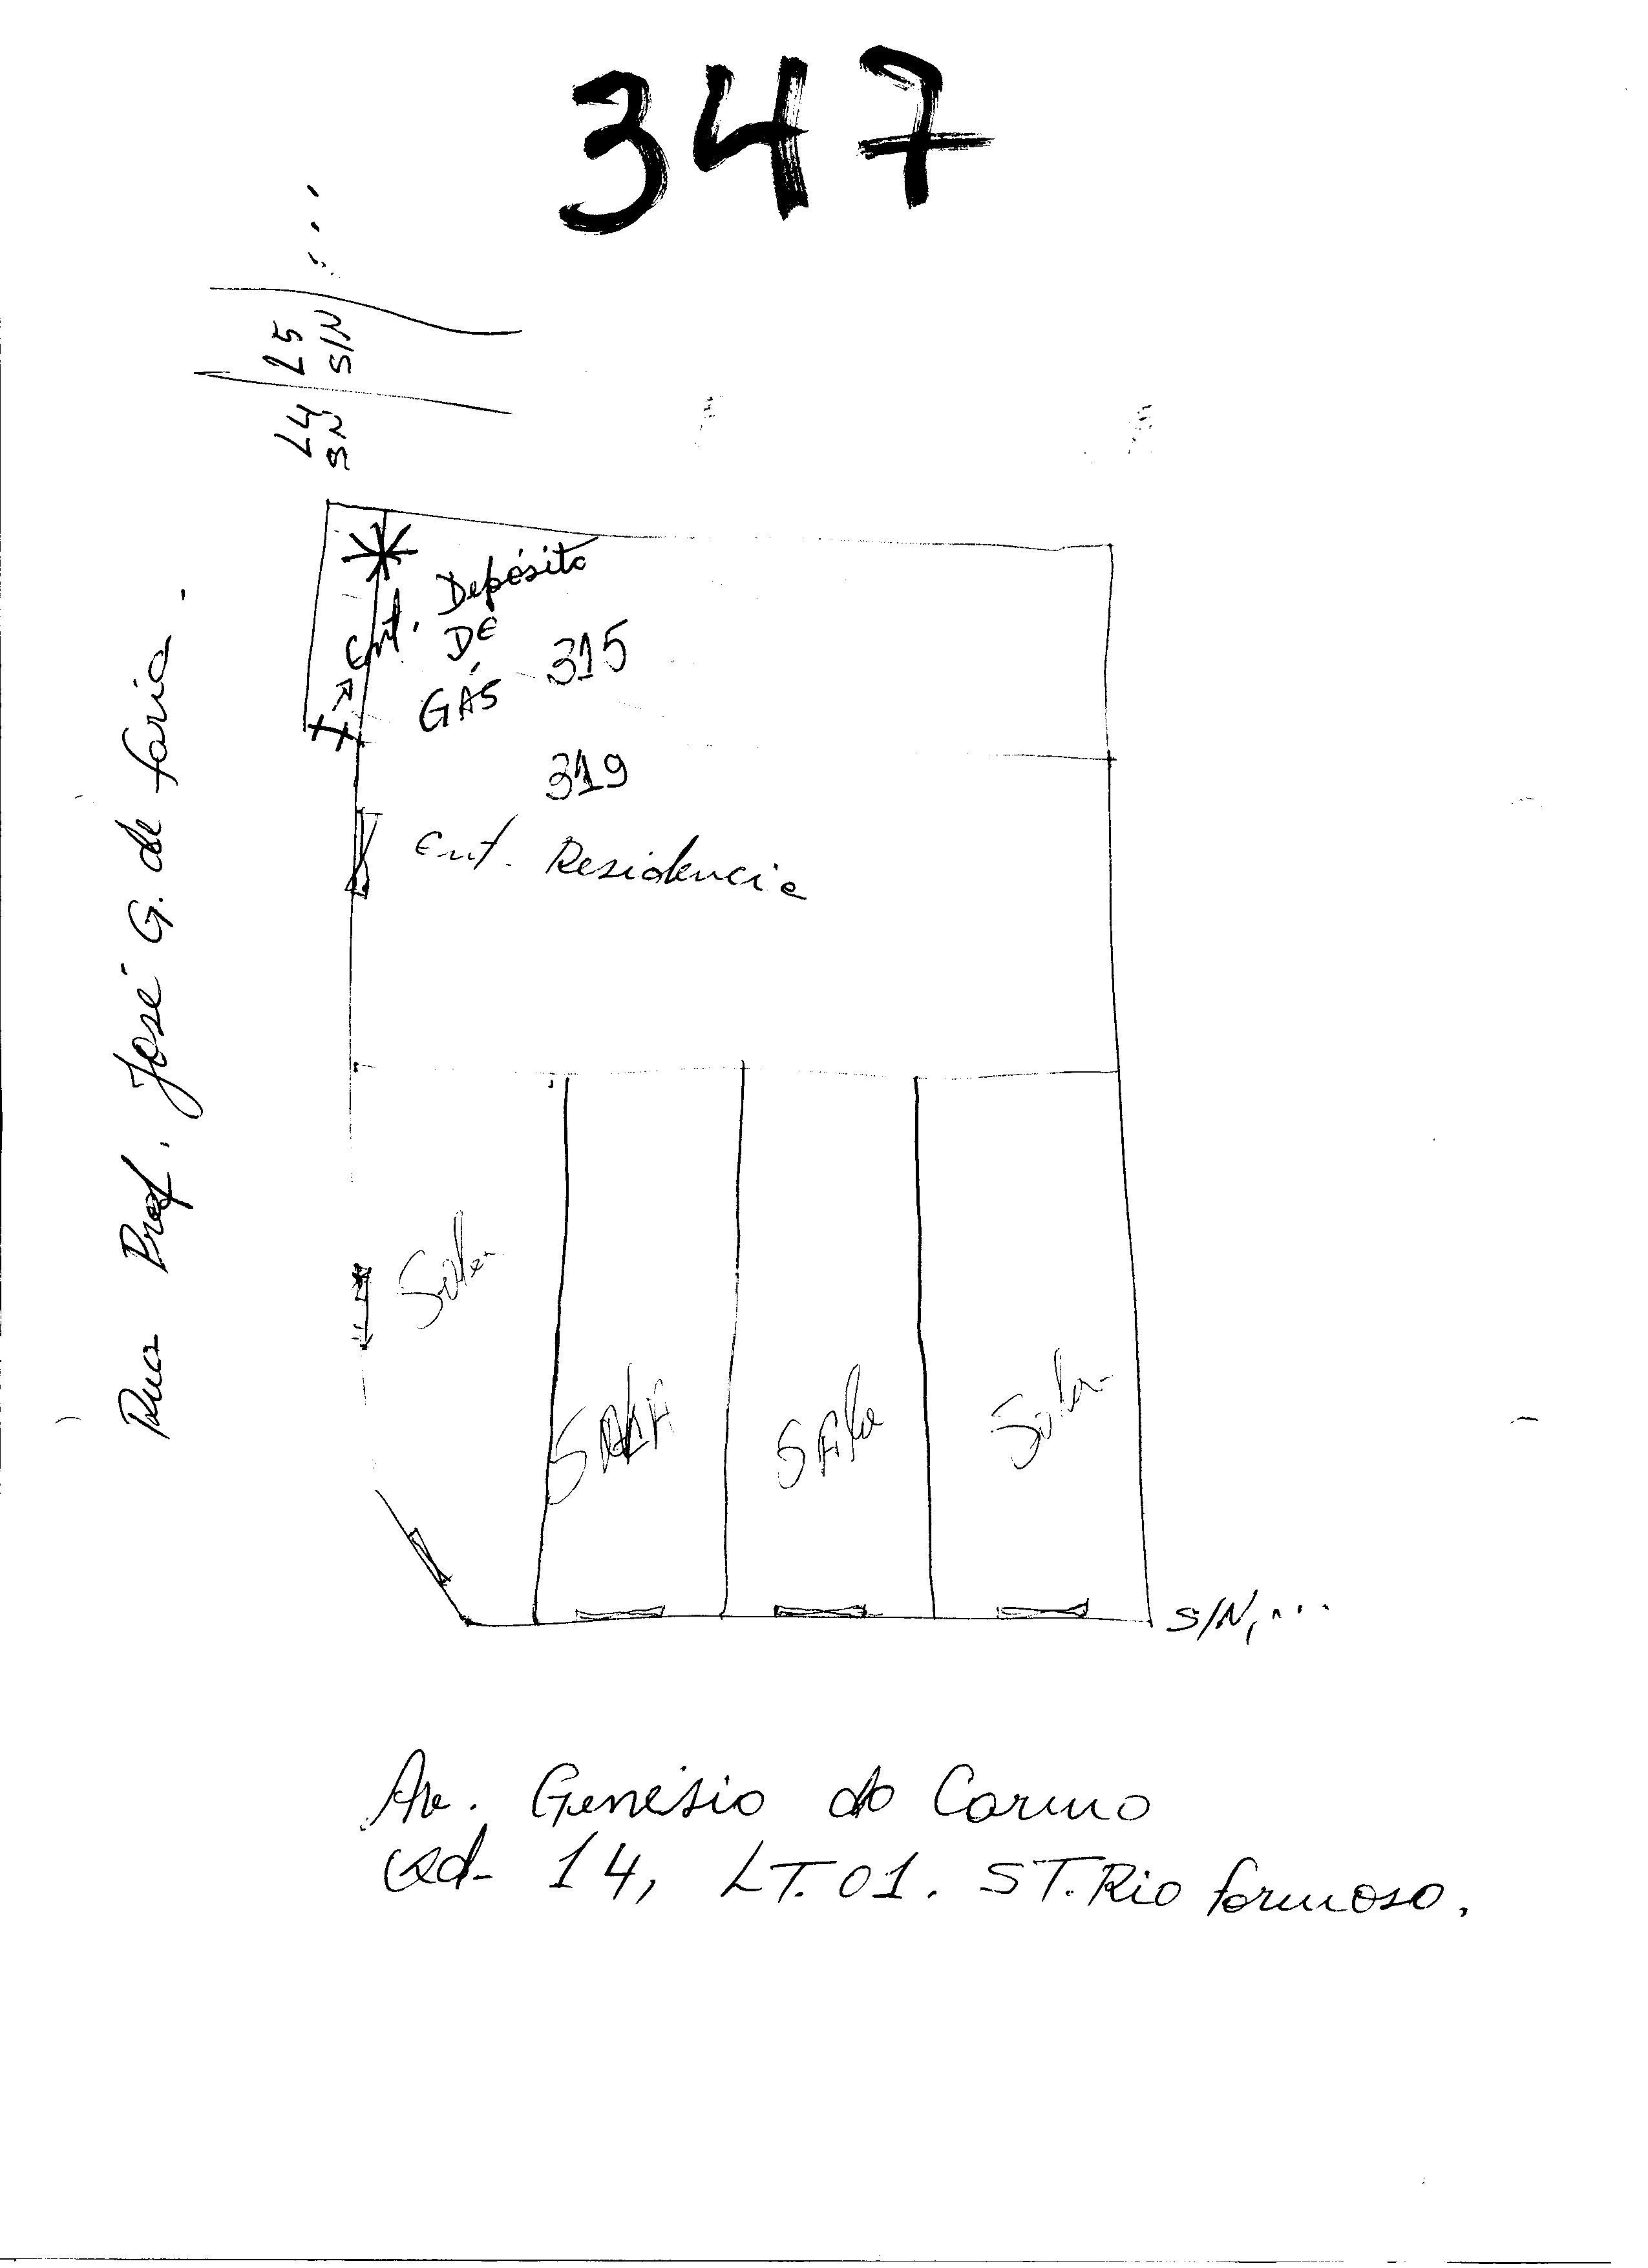 347
...
L5
S/N
L4
SN
Ent. Depósito
DE
GÁS 315
319
Ent. Residencia
Rua Prof. José G. de faria.
Sala
SALA
SAla
Sala
S/N, ...
Av. Genésio do Carmo
Qd- 14, LT.01. ST. Rio formoso.